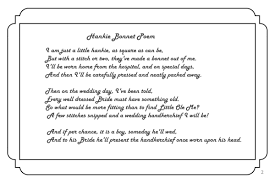 Hankie Bonnet Poem
I am just a little hankie, as square as can be,
But with a stitch or two, they've made a bonnet out of me.
I'll be worn home from the hospital, and on special days,
And then I'll be carefully pressed and neatly packed away.
Then on the wedding day, I've been told,
Every well dressed Bride must have something old.
So what would be more fitting than to find Little Ole Me?
A few stitches snipped and a wedding handkerchief I will be!
And if per chance, it is a boy, someday he'll wed,
And to his Bride he'll present the handkerchief once worn upon his head.